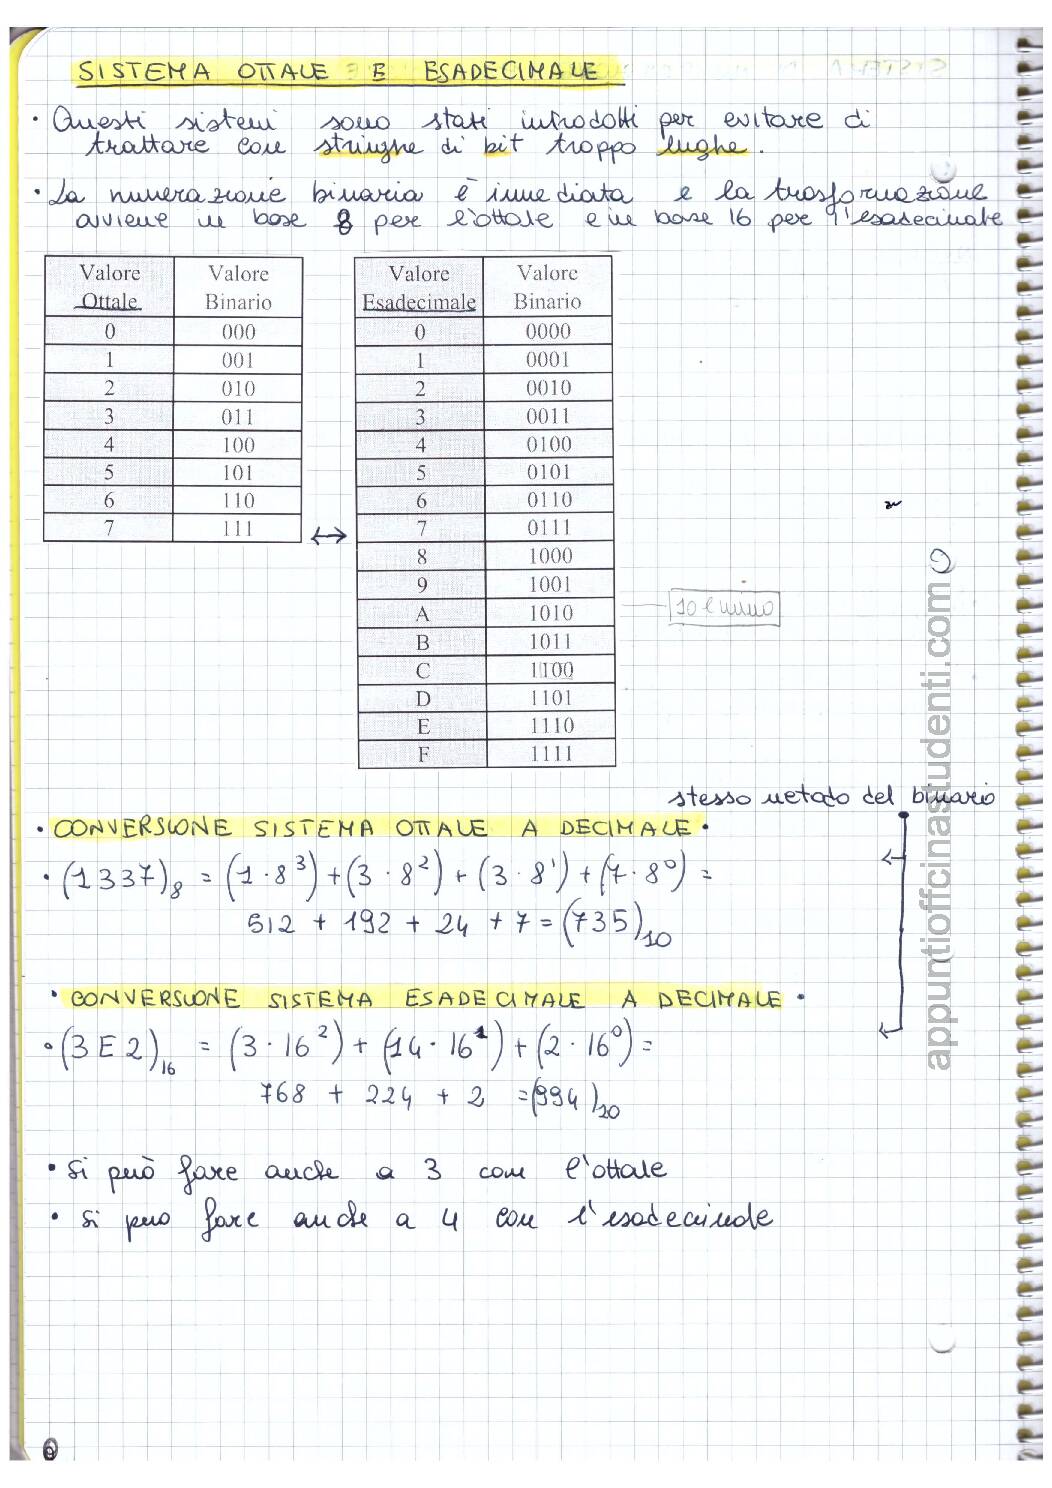 SISTEMA OTTALE E ESADECIMALE
• Questi sistemi sono stati introdotti per evitare di
trattare con stringhe di bit troppo lughe.
• La numerazione binaria è immediata e la trasformazione
avviene in base 8 per l'ottale e in base 16 per l'esadecimale
Valore Ottale Valore Binario
0 000
1 001
2 010
3 011
4 100
5 101
6 110
7 111
↔
Valore Esadecimale Valore Binario
0 0000
1 0001
2 0010
3 0011
4 0100
5 0101
6 0110
7 0111
8 1000
9 1001
A 1010
B 1011
C 1100
D 1101
E 1110
F 1111
stesso metodo del binario
• CONVERSIONE SISTEMA OTTALE A DECIMALE •
• (1337)₈ = (1·8³)+(3·8²)+(3·8¹)+(7·8⁰) =
512 + 192 + 24 + 7 = (735)₁₀
• CONVERSIONE SISTEMA ESADECIMALE A DECIMALE •
• (3E2)₁₆ = (3·16²)+(14·16¹)+(2·16⁰) =
768 + 224 + 2 = (994)₁₀
• Si può fare anche a 3 con l'ottale
• Si puo fare anche a 4 con l'esadecimale
appuntioffcinastudenti.com